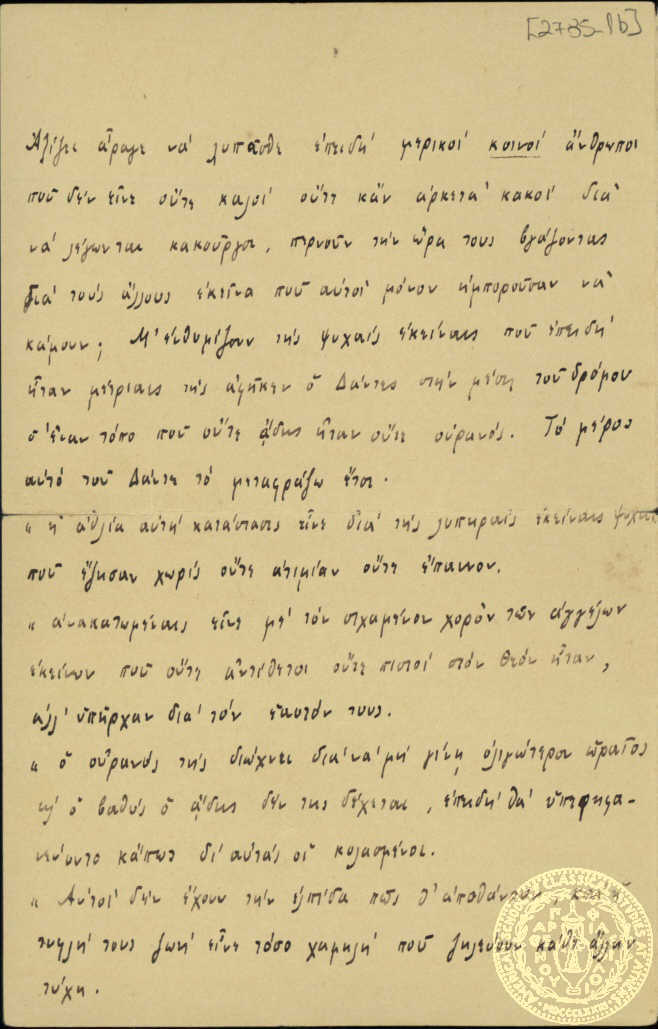 [2735-1b]
Ἀξίζει ἆραγε νά λυπᾶσθε ἐπειδή μερικοί κοινοί ἄνθρωποι
ποῦ δέν εἶνε οὔτε καλοί οὔτε κἄν ἀρκετά κακοί διά
νά λέγωνται κακοῦργοι, περνοῦν τήν ὥρα τους βγάζοντας
διά τούς ἄλλους ἐκεῖνα ποῦ αὐτοί μόνον ἠμποροῦσαν νά
κάμουν; Μ' ἐνθυμίζουν τής ψυχαίς ἐκείναις ποῦ ἐπειδή
ἦταν μέτριαις τής ἀφῆκεν ὁ Δάντες στήν μέση τοῦ δρόμου
σ' ἕναν τόπο ποῦ οὔτε ᾅδης ἦταν οὔτε οὐρανός. Τό μέρος
αὐτό τοῦ Δάντε τό μεταφράζω ἔτσι.
" ἡ ἀθλία αὐτή κατάστασις εἶνε διά τής λυπηραίς ἐκείναις ψυχαίς
ποῦ ἔζησαν χωρίς οὔτε ἀτιμίαν οὔτε ἔπαινον.
" ἀνακατωμέναις εἶνε μέ τόν σιχαμένον χορόν τῶν ἀγγέλων
ἐκείνων ποῦ οὔτε ἀντίθετοι οὔτε πιστοί στόν Θεόν ἦταν,
ἀλλ' ὑπῆρχαν διά τόν ἑαυτόν τους.
" ὁ οὐρανός τής διώχνει διά νά μή γίνῃ ὀλιγώτερον ὡραῖος
κι' ὁ βαθύς ὁ ᾅδης δέν τις δέχεται, ἐπειδή θά ὑπερηφα-
νεύοντο κάπως δι' αὐτάς οἱ κολασμένοι.
" Αὐτοί δέν ἔχουν τήν ἐλπίδα πῶς θ' ἀποθάνουν, καί ἡ
τυφλή τους ζωή εἶνε τόσο χαμηλή ποῦ ζηλεύουν κάθε ἄλλην
τύχη.